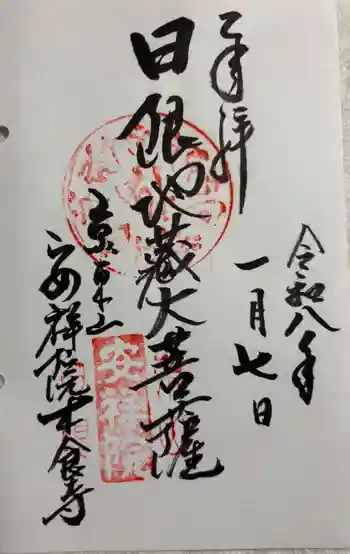 奉拝
令和八年
一月七日
日限地蔵大菩薩
京五条
安祥院木食寺
安祥院